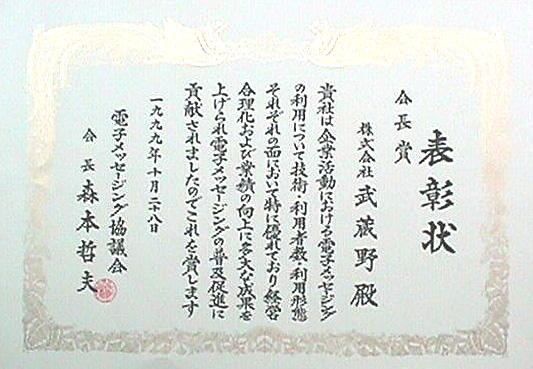 表彰状
会長賞
株式会社 武蔵野殿
貴社は企業活動における電子メッセージング
の利用について技術・利用者数・利用形態
それぞれの面において特に優れており経営
合理化および業績の向上に多大な成果を
上げられ電子メッセージングの普及促進に
貢献されましたのでこれを賞します
一九九九年十月二十八日
電子メッセージング協議会
会長 森本哲夫